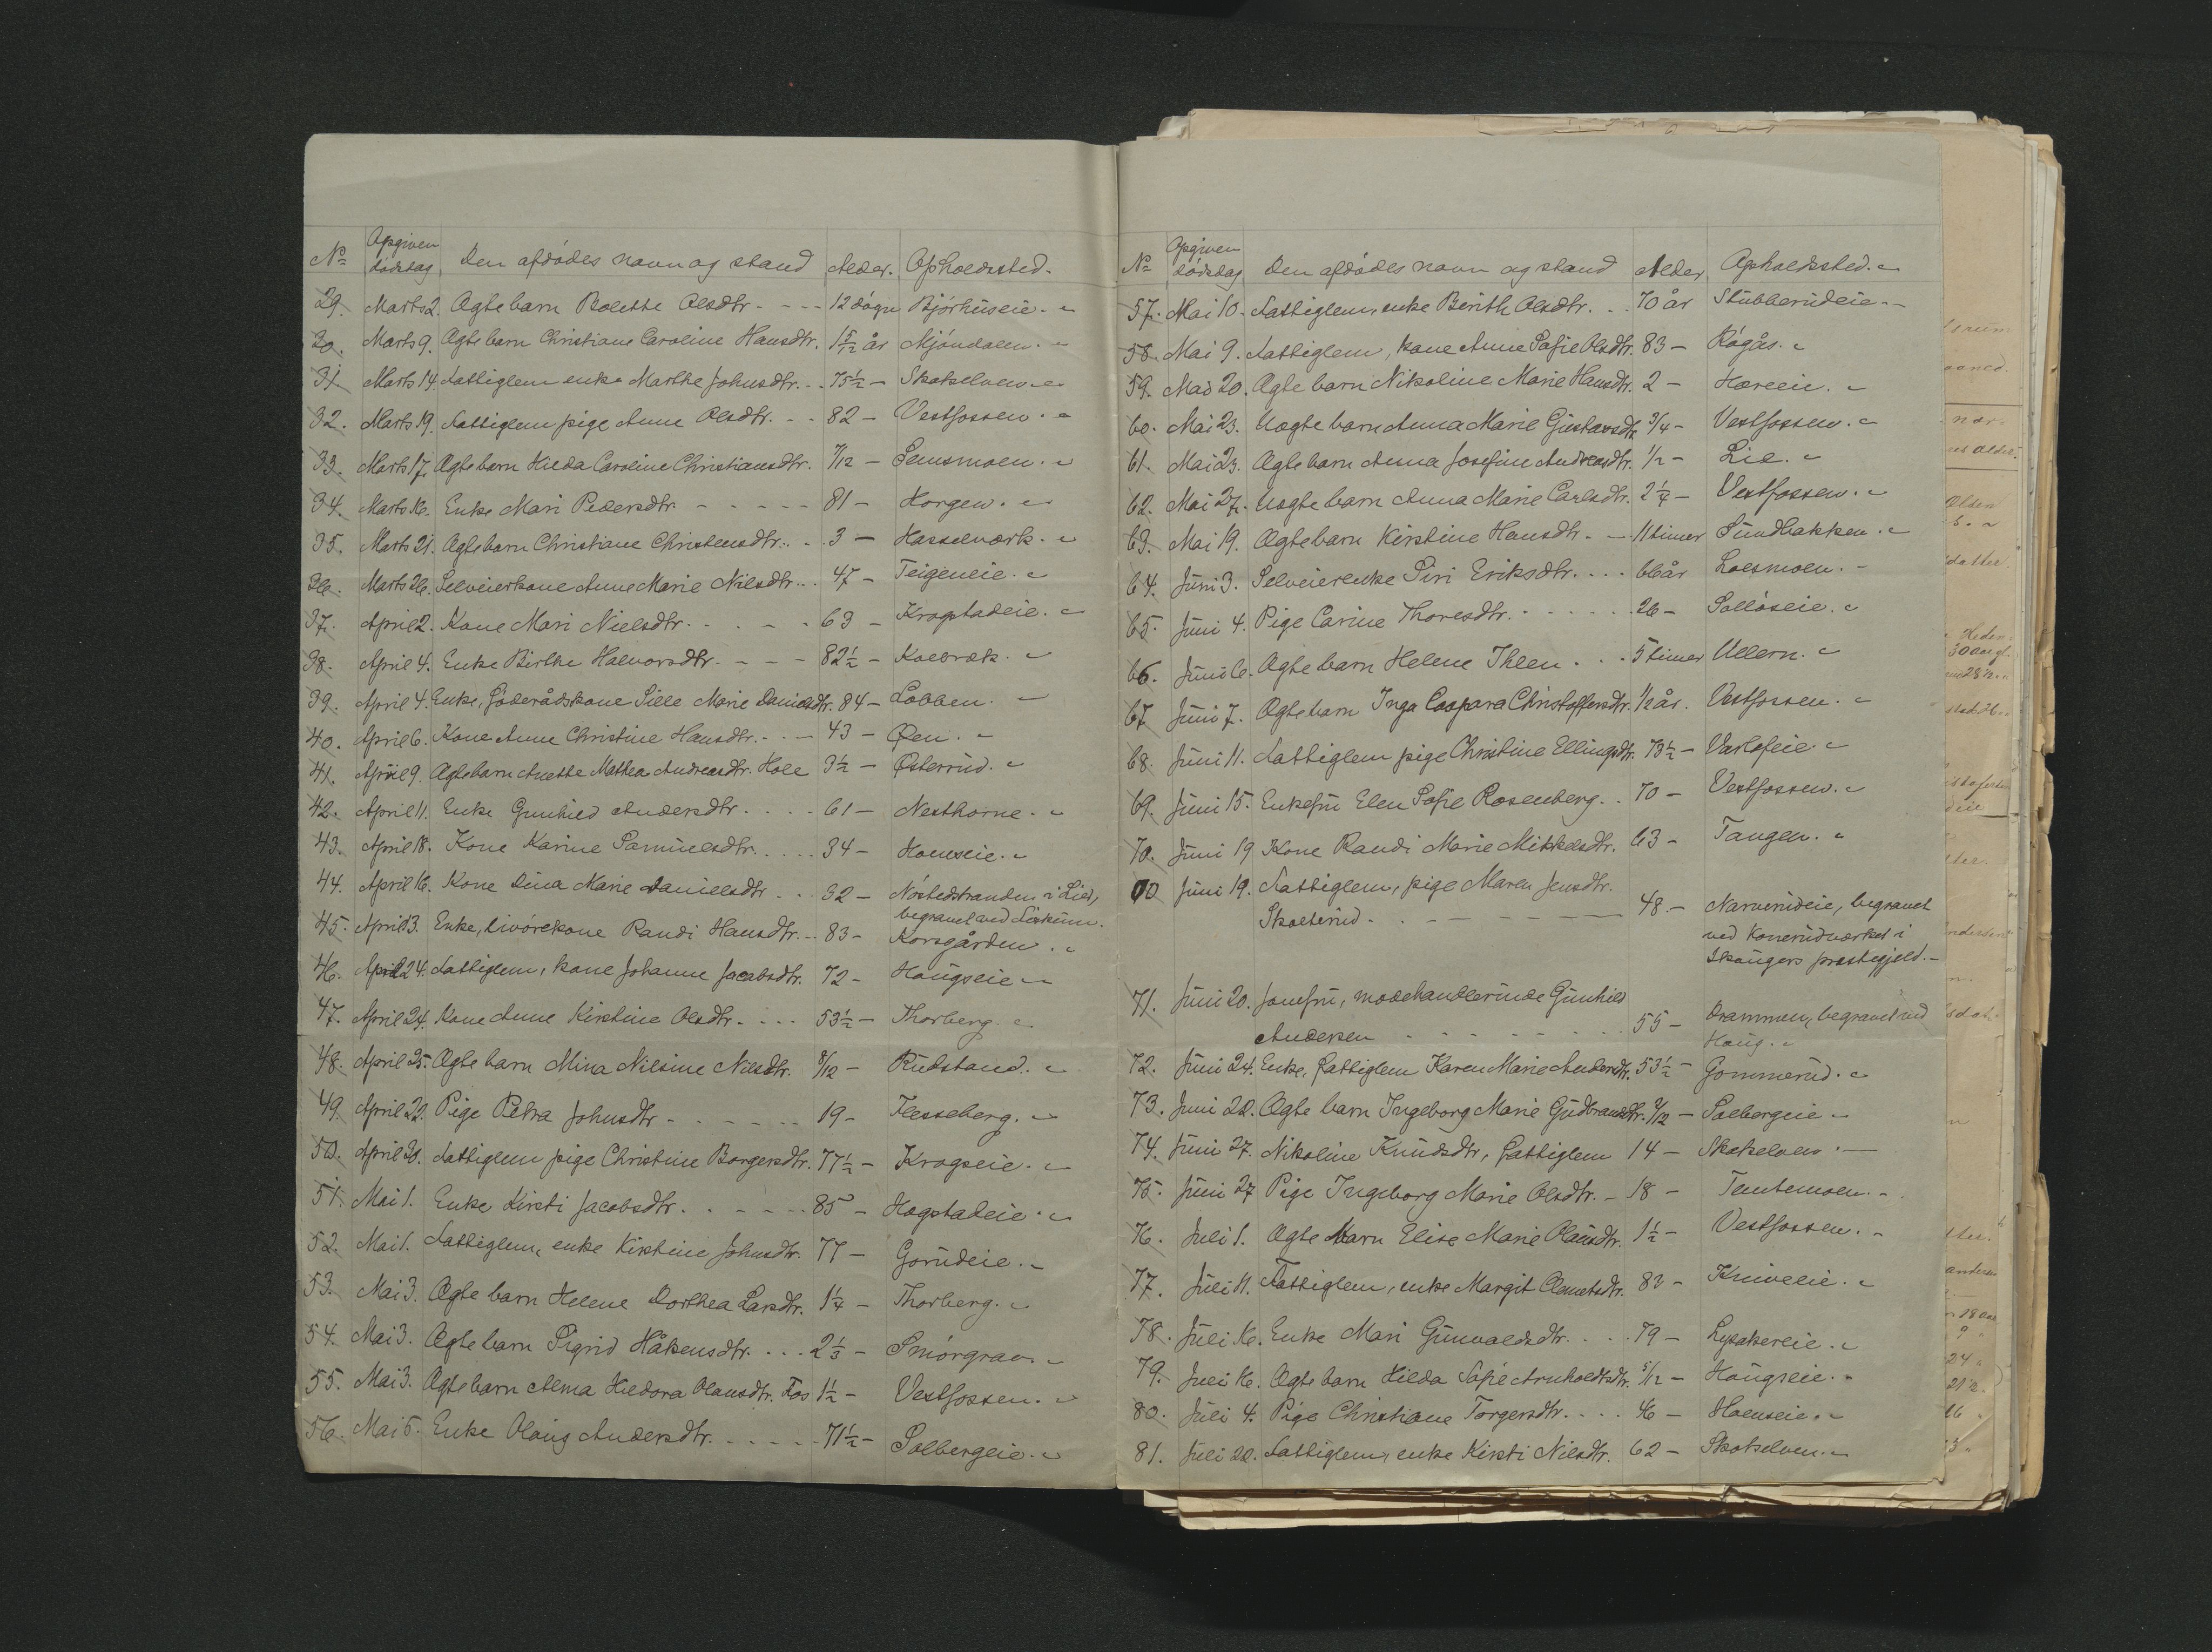 Nº Opgiven dødsdag Den afdødes navn og stand Alder. Opholdssted.
29. Marts 2. Ægte barn Bolette Olsdtr. - - - 12 døgn Bjørhuseie.
30. Marts 9. Ægte barn Christiane Caroline Hansdtr. 1 5/12 år Mjøndalen.
31. Marts 14 Fattiglem enke Marthe Johnsdtr. - - 75½ — Skotselven.
32. Marts 19. Fattiglem pige Anne Olsdtr. - - 82 — Vestfossen.
33. Marts 17. Ægte barn Hilda Caroline Christiansdtr. 7/12 — Semsmoen.
34. Marts 16. Enke Mari Pedersdtr. - - - - - 81 — Horgen.
35. Marts 21. Ægte barn Christiane Christensdtr. - 3 — Hasselværk.
36. Marts 26. Selveierkone Anne Marie Nilsdtr. - - 47 — Teigeneie.
37. April 2. Kone Mari Nielsdtr. - - - - 63 — Krogstadeie.
38. April 4. Enke Birthe Halvorsdtr. - - - 82½ — Kolbræk.
39. April 4. Enke, føderådskone Sille Marie Danielsdtr. 84 — Løbben.
40. April 6. Kone Anne Christine Hansdtr. - - - 43 — Øen.
41. April 9. Ægte barn Anette Mathea Andreasdtr. Hole 3½ — Østerrud.
42. April 11. Enke Gunhild Andersdtr. . . . . 61 — Nesthorne.
43. April 18. Kone Karine Samuelsdtr. . . . . 34 — Hoenseie.
44. April 16. Kone Dina Marie Danielsdtr . . 32 — Nøstedstranden i Lier,
begravet ved
45. April 13. Enke, livørekone Randi Hansdtr. - - 83 — Korsgården.
46. April 24. Fattiglem, kone Johanne Jacobsdtr. 72 — Haugseie
47. April 24. Kone Anne Kirstine Olsdtr. - - - - 53½ — Thorberg.
48. April 25. Ægte barn Mina Nilsine Nilsdtr. 8/12 — Rudstand.
49. April 22. Pige Petra Johnsdtr - - - - - - 19 — Flesseberg.
50. April 30. Fattiglem pige Christine Borgersdtr. 77½ — Krogseie.
51. Mai 1. Enke Kirsti Jacobsdtr. . - - - - 85 — Hogstadeie.
52. Mai 1. Fattiglem, enke Kirstine Johnsdtr. 77 — Gorudeie.
53. Mai 3. Ægte barn Helene Dorthea Larsdtr. 1¼ — Thorberg.
54. Mai 3. Ægte barn Sigrid Håkensdtr. . . . 2⅓ — Smørgrav.
55. Mai 3. Ægte barn Alma Hildora Olausdtr. Fos 1½ — Vestfossen.
56. Mai 5. Enke Olaug Andersdtr. . - - - - 71½ — Solbergeie.
Nº Opgiven dødsdag Den afdødes navn og stand Alder Opholdssted.
57. Mai 10. Fattiglem, enke Berith Olsdtr. . . 70 år Stubberudeie.
58. Mai 9. Fattiglem, kone Anne Sofie Olsdtr. 83 — Rågås.
59. Mai 20. Ægte barn Nikoline Marie Hansdtr. 2 — Hæreeie.
60. Mai 23. Uægte barn Anna Marie Gustavsdtr. 3/4 — Vestfossen.
61. Mai 23. Ægte barn Anna Josefine Andreasdtr. 1/2 — Lie.
62. Mai 27. Uægte barn Anna Marie Carlsdtr. 2¼ — Vestfossen.
63. Mai 19. Ægte barn Kirstine Hansdtr. - — 11 timer Sundbakken.
64. Juni 3. Selveierenke Siri Eriksdtr. . . . 66 år Loesmoen.
65. Juni 4. Pige Carine Thoresdtr. . . . . . . 26 — Solløseie.
66. Juni 6. Ægte barn Helene Ihlen . . . 5 timer Ullern.
67. Juni 7. Ægte barn Inga Caspara Christoffersdtr. 1/2 år. Vestfossen.
68. Juni 11. Fattiglem pige Christine Ellingsdtr. 73½ — Varlofeie.
69. Juni 15. Enkefru Elen Sofie Rosenberg . . 70 — Vestfossen.
70. Juni 19 Kone Randi Marie Mikkelsdtr. 63 — Tangen.
70 Juni 19. Fattiglem, pige Maren Jensdtr.
Skolterud - 48 — Narverudeie, begravet
ved Konerudværket i
Skougers prestegjeld.—
71. Juni 20. Jomfru, modehandlerinde Gunhild
Andersen . . . . . . . 55 — Drammen, begravet ved
Haug.
72. Juni 24. Enke, fattiglem Karen Marie Andersdtr. 53½ — Gommerud.
73. Juni 22. Ægte barn Ingeborg Marie Gudbrandsdtr. 2/12 — Solbergeie
74. Juni 27. Nikoline Knudsdtr, fattiglem 14 — Skotselven.
75. Juni 27 Pige Ingeborg Marie Olsdtr. - 18 — Temtemoen.
76. Juli 1. Ægte barn Elise Marie Olausdtr. 1½ — Vestfossen.
77. Juli 11. Fattiglem, enke Margit Clemetsdtr. 83 — Kniveeie.
78. Juli 16. Enke Mari Gunvaldsdtr. . . . . 79 — Lysakereie.
79. Juli 16. Ægte barn Hilda Sofie Arnholdtsdtr. 5/12 — Haugseie.
80. Juli 4. Pige Christiane Torgersdtr. . . . . 46 — Hoenseie.
81. Juli 22. Fattiglem, enke Kirsti Nilsdtr. 62 — Skotselven.